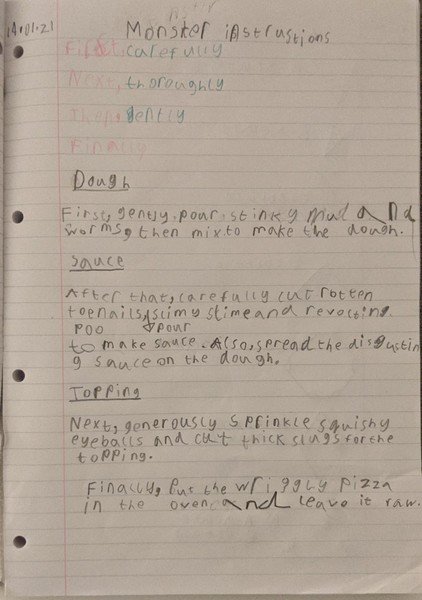 14.01.21
Monster instrustions
First, carefully
Next, thoroughly
Then, gently
Finally
Dough
First, gently pour stinky mud and
worms, then mix to make the dough.
Sauce
After that, carefully cut rotten
toenails, slimy slime and revolting
poo pour
to make sauce. Also, spread the disgustin
g sauce on the dough.
Topping
Next, generously sprinkle squishy
eyeballs and cut thick slugs for the
topping.
Finally, put the wriggly pizza
in the oven and leave it raw.